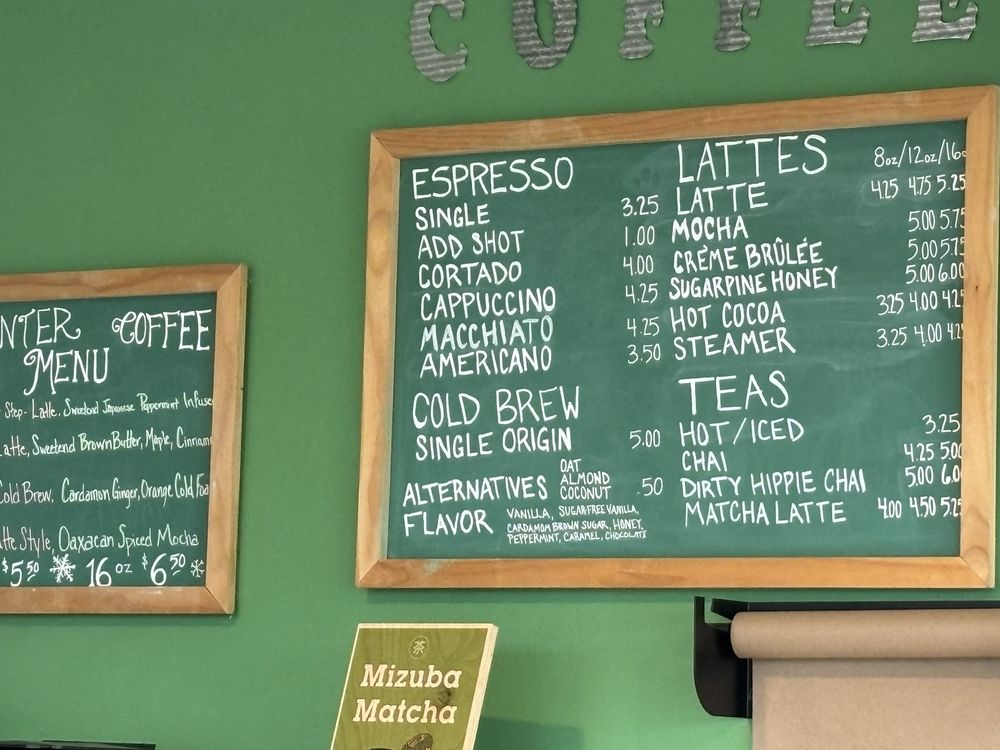 COFFEE
ESPRESSO
SINGLE 3.25
ADD SHOT 1.00
CORTADO 4.00
CAPPUCCINO 4.25
MACCHIATO 4.25
AMERICANO 3.50
COLD BREW
SINGLE ORIGIN 5.00
ALTERNATIVES OAT ALMOND COCONUT .50
FLAVOR VANILLA, SUGAR FREE VANILLA,
CARDAMOM BROWN SUGAR, HONEY,
PEPPERMINT, CARAMEL, CHOCOLATE
LATTES 8oz/12oz/16o
LATTE 4.25 4.75 5.25
MOCHA 5.00 5.75
CRÈME BRÛLÉE 5.00 5.75
SUGARPINE HONEY 5.00 6.00
HOT COCOA 3.25 4.00 4.25
STEAMER 3.25 4.00 4.2
TEAS
HOT/ICED 3.25
CHAI 4.25 5.00
DIRTY HIPPIE CHAI 5.00 6.0
MATCHA LATTE 4.00 4.50 5.25
NTER COFFEE
MENU
Step- Latte, Sweetend Japanese Peppermint Infuse
atte, Sweetend Brown Butter, Maple, Cinnam
Cold Brew, Cardamon Ginger, Orange Cold Foa
tte Style, Oaxacan Spiced Mocha
$5.50 16oz $6.50
茶
Mizuba
Matcha